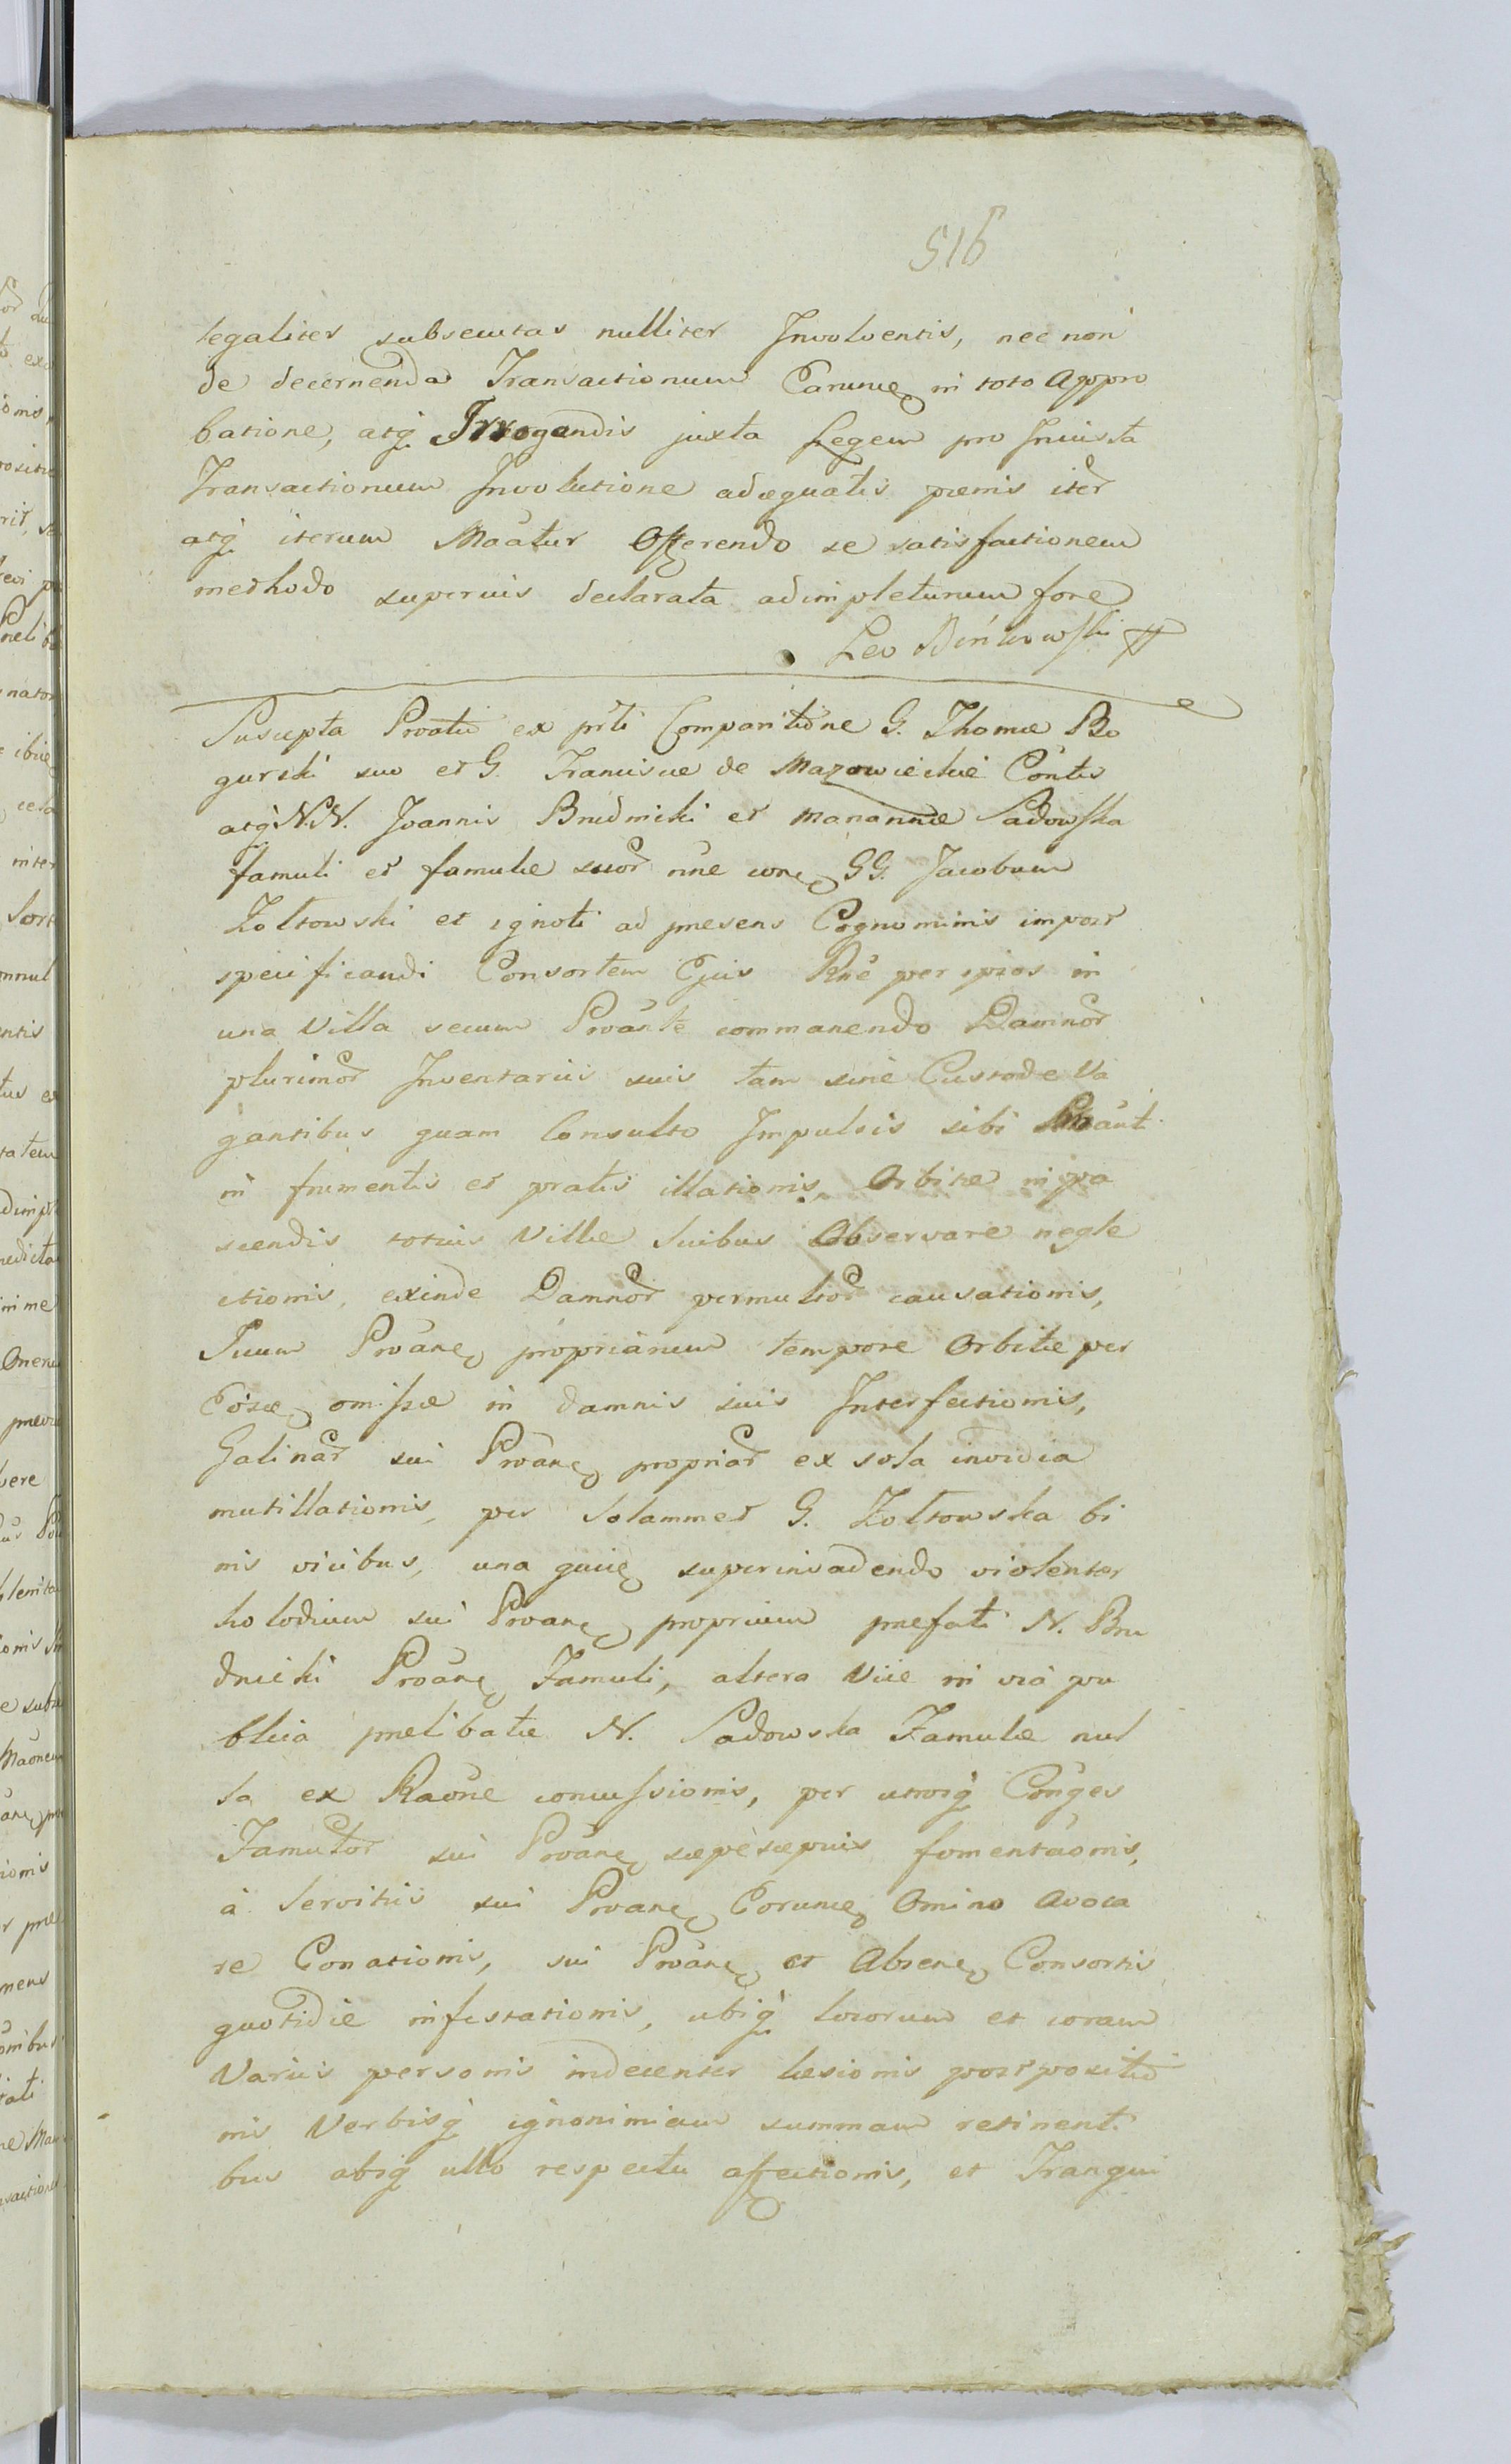 516
legaliter subsecutas nulliter Involventis, nec non
de decernenda Transactionum Earumq in toto Appro
batione, atq Irrogandis juxta Legem pro Injusta
Transactionum Involutione adæquatis pœnis iter
atq iterum Maãtur Offerendo se satisfactionem
methodo superius declarata adimpleturum fore
Leo Bińkowski
Suscepta Proatio ex prti Comparitione G. Thomæ Bo
gurski suo et G. Franciscæ de Mazowieckie Contis
atq N.N. Joannis Brudnicki et Mariannæ Sadowska
famuli et famulæ suor nne conq GG. Jacobum
Zoltowski et ignoti ad præsens Cognominis impost
specificandi Consortem Ejus Rne per ipsos in
una Villa secum Proante commanendo Damnor
plurimor Inventariis suis tam sine Custode Va
gantibus quam Consulto Impulsis sibi Proant
in frumentis et pratis illationis, Orbitæ in pa
scendis totius Villæ Suibus Observare negle
ctionis, exinde Damnor permultor causationis,
Suum Proanq proprianum tempore Orbitæ per
Eosq omissæ in damnis suis Interfectionis,
Galinar sui Proanq propriar ex sola invidia
mutillationis, per Solammet G. Zoltowska bi
nis vicibus, una quiq superinvadendo violenter
holodium sui Proanq proprium præfati N. Bru
dnicki Proanq Famuli, altera Vice in via pu
blica prælibatæ N. Sadowska Famulæ nul
la ex Raone concussionis, per utrosq Conges
Famulor sui Proanq sæpesæpius fomentaonis,
à Servitiis sui Proanq Eorumq Omino Avoca
re Conationis, sui Proanq et Absenq Consortis
quotidie infestationis, ubiq locorum et coram
Variis personis indecenter læsionis postpositio
nis Verbisq ignonimiam summam retinenti
bus absq ullo respectu affectionis, et Tranqui